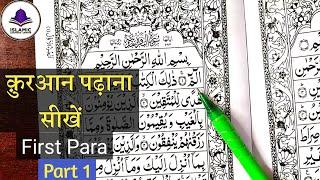 ISLAMIC
क़ुरआन पढ़ाना
सीखें
First Para
Part 1
بِسْمِ اللهِ الرَّحْمٰنِ الرَّحِيْمِ
الٓمّٓ ذٰلِكَ الْكِتٰبُ
هُدًى لِّلْمُتَّقِيْنَ الَّذِيْنَ يُؤْمِنُوْنَ
بِالْغَيْبِ وَيُقِيْمُوْنَ الصَّلٰوةَ وَمِمَّا
رَزَقْنٰهُمْ يُنْفِقُوْنَ وَالَّذِيْنَ
بِمَآ اُنْزِلَ اِلَيْكَ وَمَآ اُنْزِلَ